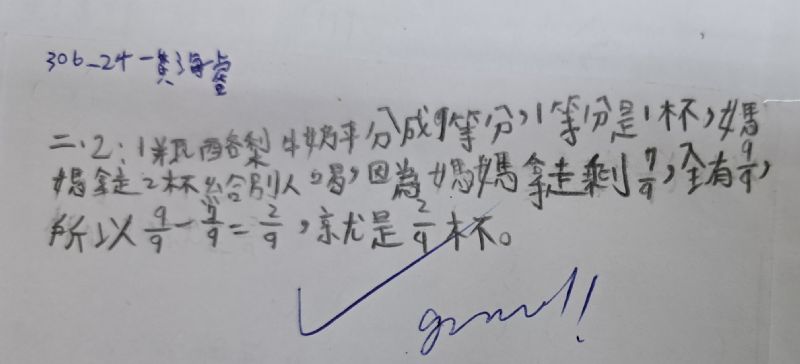 306-24 黃
二、2:1瓶酪梨牛奶平分成9等分,1等分是1杯,媽
媽拿走2杯給別人喝,因為媽媽拿走剩7/9,全有9/9,
所以9/9-7/9=2/9,就是2/9杯。
good!!